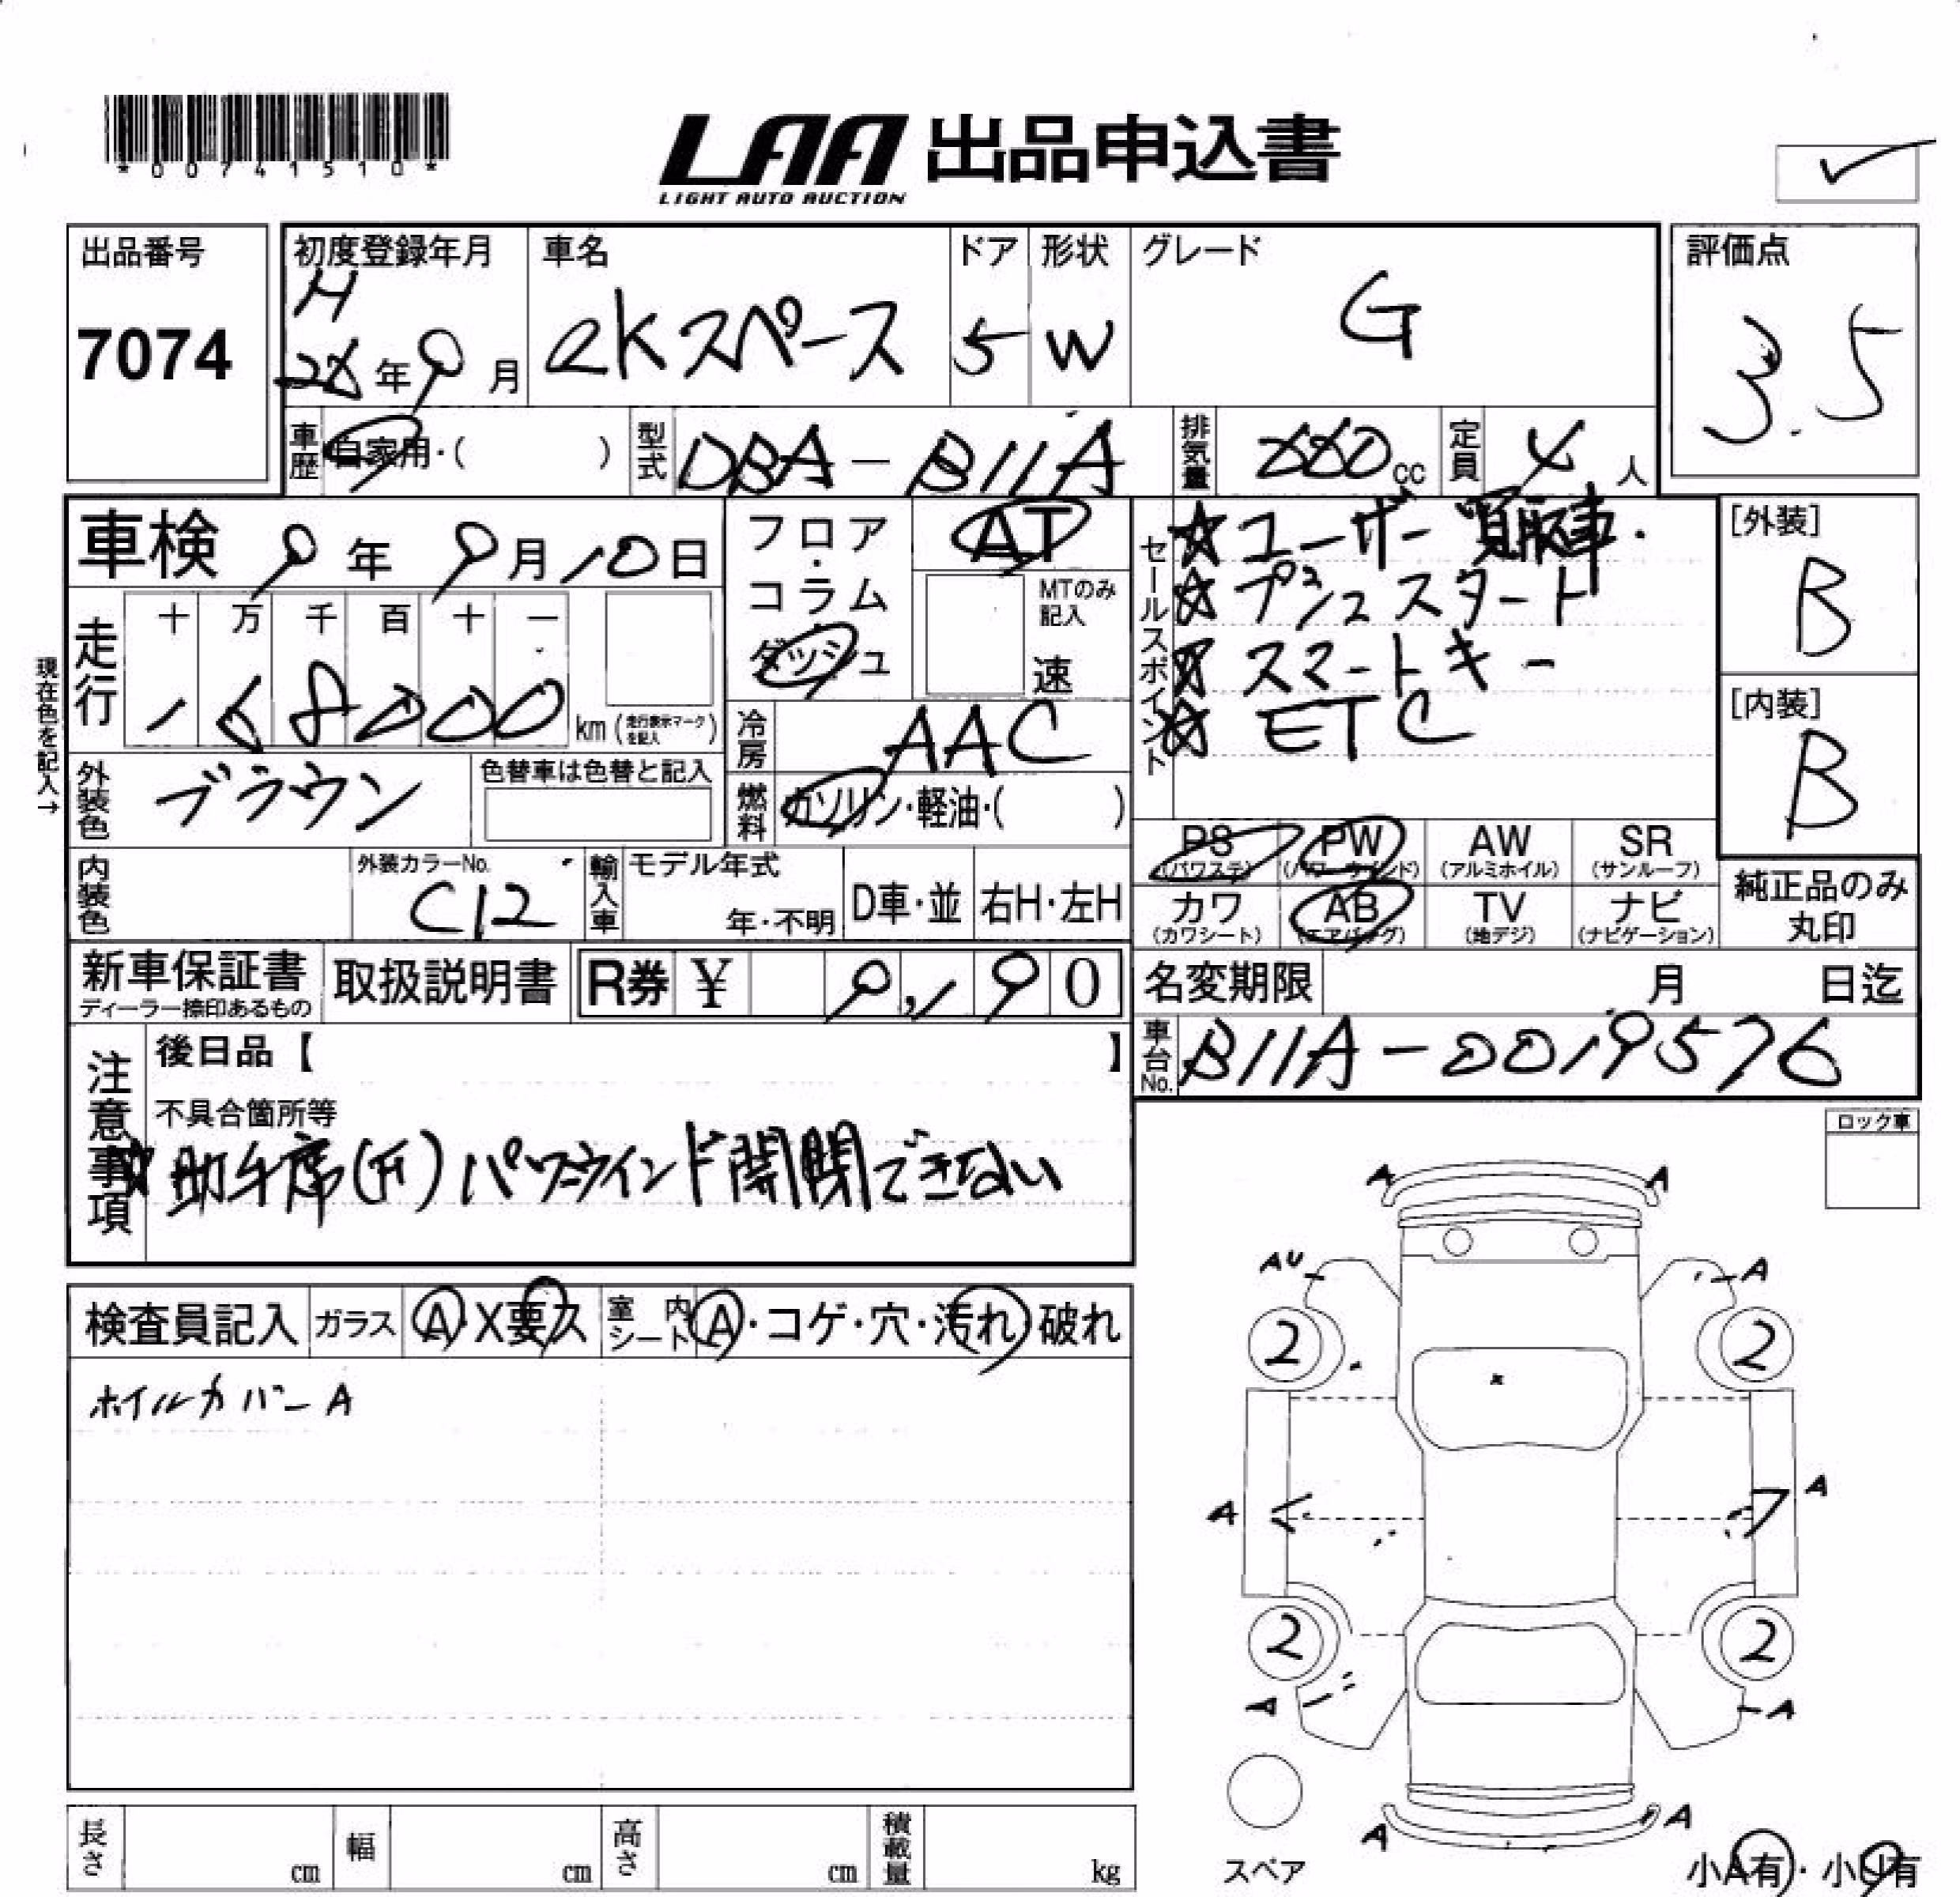 *00741510*
LAA 出品申込書
LIGHT AUTO AUCTION
出品番号
7074
初度登録年月
H
28年9月
車名
eKスペース
ドア
5
形状
W
グレード
G
評価点
3.5
車歴
自家用・( )
型式
DBA-B11A
排気量
660cc
定員
4人
車検 9年9月10日
走行
十 万 千 百 十 一
168000
km(走行表示マークを記入)
現在色を記入→
フロア・コラム
ダッシュ
AT
MTのみ記入
速
冷房
AAC
燃料
ガソリン・軽油・( )
外装色
ブラウン
色替車は色替と記入
内装色
外装カラーNo.
C12
輸入車
モデル年式
年・不明
D車・並
右H・左H
セールスポイント
☆ユーザー買取車.
☆プッシュスタート
☆スマートキー
☆ETC
[外装]
B
[内装]
B
PS
(パワステ)
PW
(パワーウインド)
AW
(アルミホイル)
SR
(サンルーフ)
カワ
(カワシート)
AB
(エアバッグ)
TV
(地デジ)
ナビ
(ナビゲーション)
純正品のみ
丸印
新車保証書
ディーラー捺印あるもの
取扱説明書
R券 ¥ 9,190
名変期限 月 日迄
車台No.
B11A-0019576
注意事項
後日品【 】
不具合箇所等
☆助手席(F)パワーウインド開閉できない
ロック車
検査員記入
ガラス
A・X要ス
室内シート
A・コゲ・穴・汚れ・破れ
ホイルカバーA
A
A
AU
A
2
2
x
A
A
2
2
A
A
A
A
スペア
小A有・小U有
長さ cm
幅 cm
高さ cm
積載量 kg